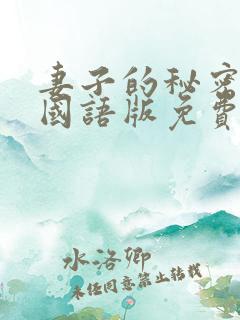 妻子的秘密
國語版免費
水洛卿
未经同意禁止转载